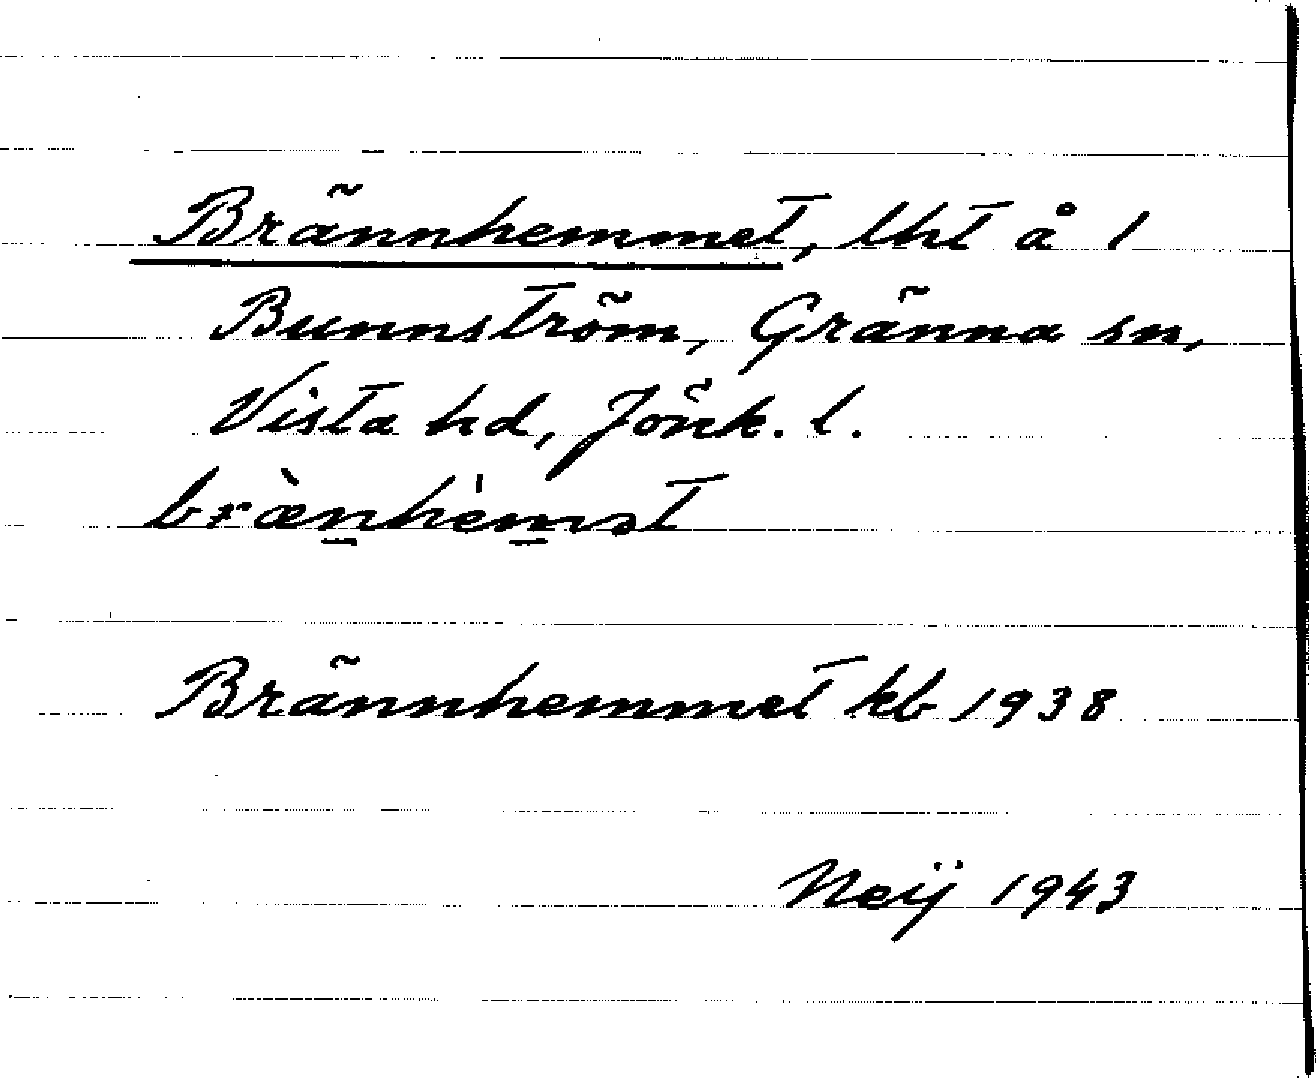 Brännhemmet, lht å 1
Bunnström, Gränna sn,
Vista hd, Jönk. l.
bræ̀n̲hèm̲ət
Brännhemmet kb 1938
Neij 1943